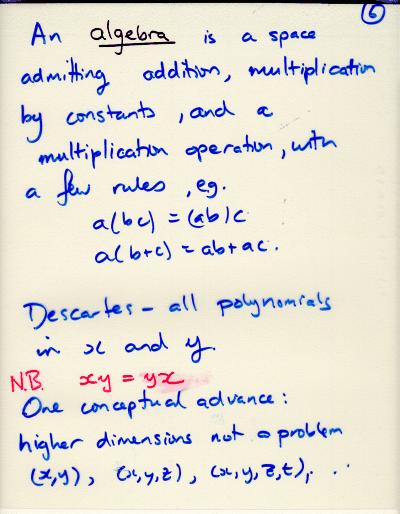 6
An algebra is a space
admitting addition, multiplication
by constants, and a
multiplication operation, with
a few rules, eg.
a(bc) = (ab)c
a(b+c) = ab+ac.
Descartes – all polynomials
in x and y.
N.B. xy = yx
One conceptual advance:
higher dimensions not a problem
(x,y), (x,y,z), (x,y,z,t), ..